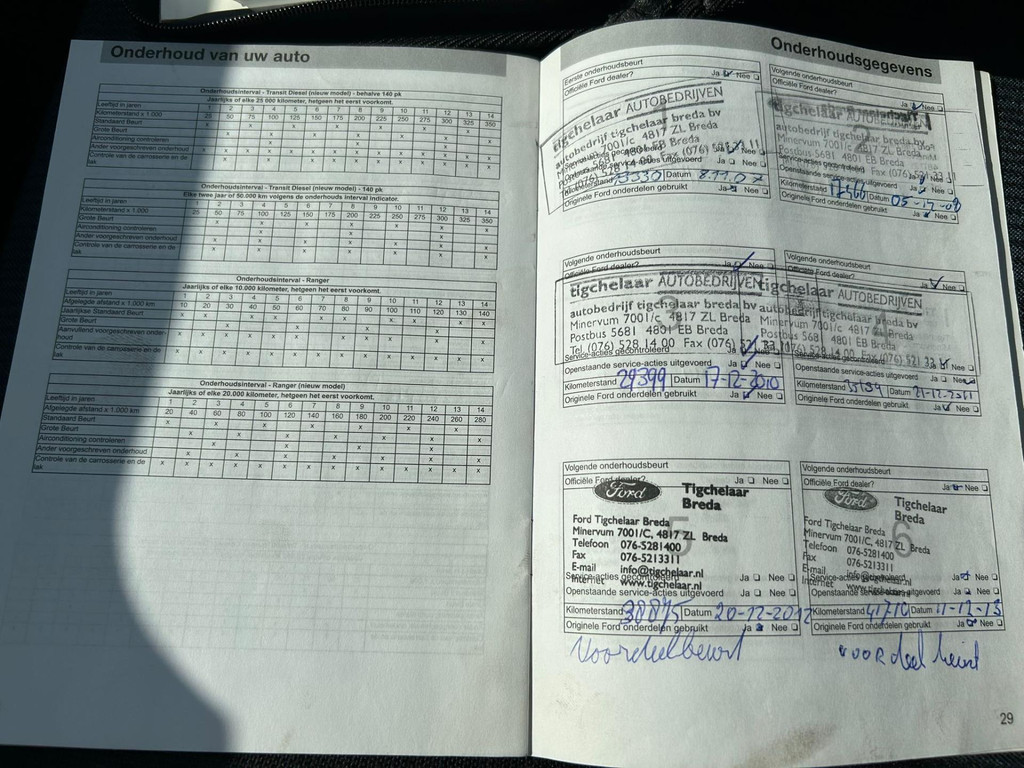 Onderhoud van uw auto
Onderhoudsinterval - Transit Diesel (nieuw model) - behalve 140 pk
Jaarlijks of elke 25 000 kilometer, hetgeen het eerst voorkomt.
Leeftijd in jaren
Kilometerstand x 1.000 25 50 75 100 125 150 175 200 225 250 275 300 325 350
Standaard Beurt
Grote Beurt
Airconditioning controleren
Ander voorgeschreven onderhoud
Controle van de carrosserie en de
lak
Onderhoudsinterval - Transit Diesel (nieuw model) - 140 pk
Elke twee jaar of 50.000 km volgens de onderhouds interval indicator.
Leeftijd in jaren
Kilometerstand x 1.000 25 50 75 100 125 150 175 200 225 250 275 300 325 350
Grote Beurt
Airconditioning controleren
Ander voorgeschreven onderhoud
Controle van de carrosserie en de
lak
Onderhoudsinterval - Ranger
Jaarlijks of elke 10.000 kilometer, hetgeen het eerst voorkomt.
Leeftijd in jaren 1 2 3 4 5 6 7 8 9 10 11 12 13 14
Afgelegde afstand x 1.000 km 10 20 30 40 50 60 70 80 90 100 110 120 130 140
Jaarlijkse Standaard Beurt
Grote Beurt
Aanvullend voorgeschreven onder-
houd
Controle van de carrosserie en de
lak
Onderhoudsinterval - Ranger (nieuw model)
Jaarlijks of elke 20.000 kilometer, hetgeen het eerst voorkomt.
Leeftijd in jaren 1 2 3 4 5 6 7 8 9 10 11 12 13 14
Afgelegde afstand x 1.000 km 20 40 60 80 100 120 140 160 180 200 220 240 260 280
Standaard Beurt
Grote Beurt
Airconditioning controleren
Ander voorgeschreven onderhoud
Controle van de carrosserie en de
lak
Onderhoudsgegevens
Eerste onderhoudsbeurt
Officiële Ford dealer? Ja Nee
tigchelaar AUTOBEDRIJVEN
autobedrijf tigchelaar breda bv
Minervum 7001/c 4817 ZL Breda
Openstaande service-acties uitgevoerd Ja Nee
Kilometerstand Datum 8.11.07
Originele Ford onderdelen gebruikt Ja Nee
Volgende onderhoudsbeurt
Officiële Ford dealer? Ja Nee
tigchelaar
autobedrijf tigchelaar breda bv
Minervum 7001/c 4817 ZL Breda
Postbus 5681 4801 EB Breda
Kilometerstand 17566 Datum 05-12-08
Originele Ford onderdelen gebruikt Ja Nee
Volgende onderhoudsbeurt
Officiële Ford dealer? Ja Nee
tigchelaar AUTOBEDRIJVEN
autobedrijf tigchelaar breda bv
Minervum 7001/c 4817 ZL Breda
Postbus 5681 4801 EB Breda
Tel. (076) 528 14 00 Fax (076) 521 33 11
Service-acties gecontroleerd
Openstaande service-acties uitgevoerd Ja Nee
Kilometerstand 29399 Datum 17-12-2010
Originele Ford onderdelen gebruikt Ja Nee
Volgende onderhoudsbeurt
Officiële Ford dealer? Ja Nee
tigchelaar AUTOBEDRIJVEN
autobedrijf tigchelaar breda bv
Minervum 7001/c 4817 ZL Breda
Postbus 5681 4801 EB Breda
Openstaande service-acties uitgevoerd Ja Nee
Kilometerstand Datum 21-12-2011
Originele Ford onderdelen gebruikt Ja Nee
Volgende onderhoudsbeurt
Officiële Ford dealer? Ja Nee
Ford Tigchelaar
Breda
5
Ford Tigchelaar Breda
Minervum 7001/C, 4817 ZL Breda
Telefoon 076-5281400
Fax 076-5213311
E-mail info@tigchelaar.nl
Service-acties gecontroleerd Ja Nee
Internet www.tigchelaar.nl
Openstaande service-acties uitgevoerd Ja Nee
Kilometerstand 38875 Datum 20-12-2012
Originele Ford onderdelen gebruikt Ja Nee
Voordeelbeurt
Volgende onderhoudsbeurt
Officiële Ford dealer? Ja Nee
Ford Tigchelaar
Breda
6
Ford Tigchelaar Breda
Minervum 7001/C, 4817 ZL Breda
Telefoon 076-5281400
Fax 076-5213311
E-mail info@tigchelaar.nl
Service-acties gecontroleerd Ja Nee
Internet www.tigchelaar.nl
Openstaande service-acties uitgevoerd Ja Nee
Kilometerstand 41710 Datum 11-12-13
Originele Ford onderdelen gebruikt Ja Nee
voordeelbeurt
29